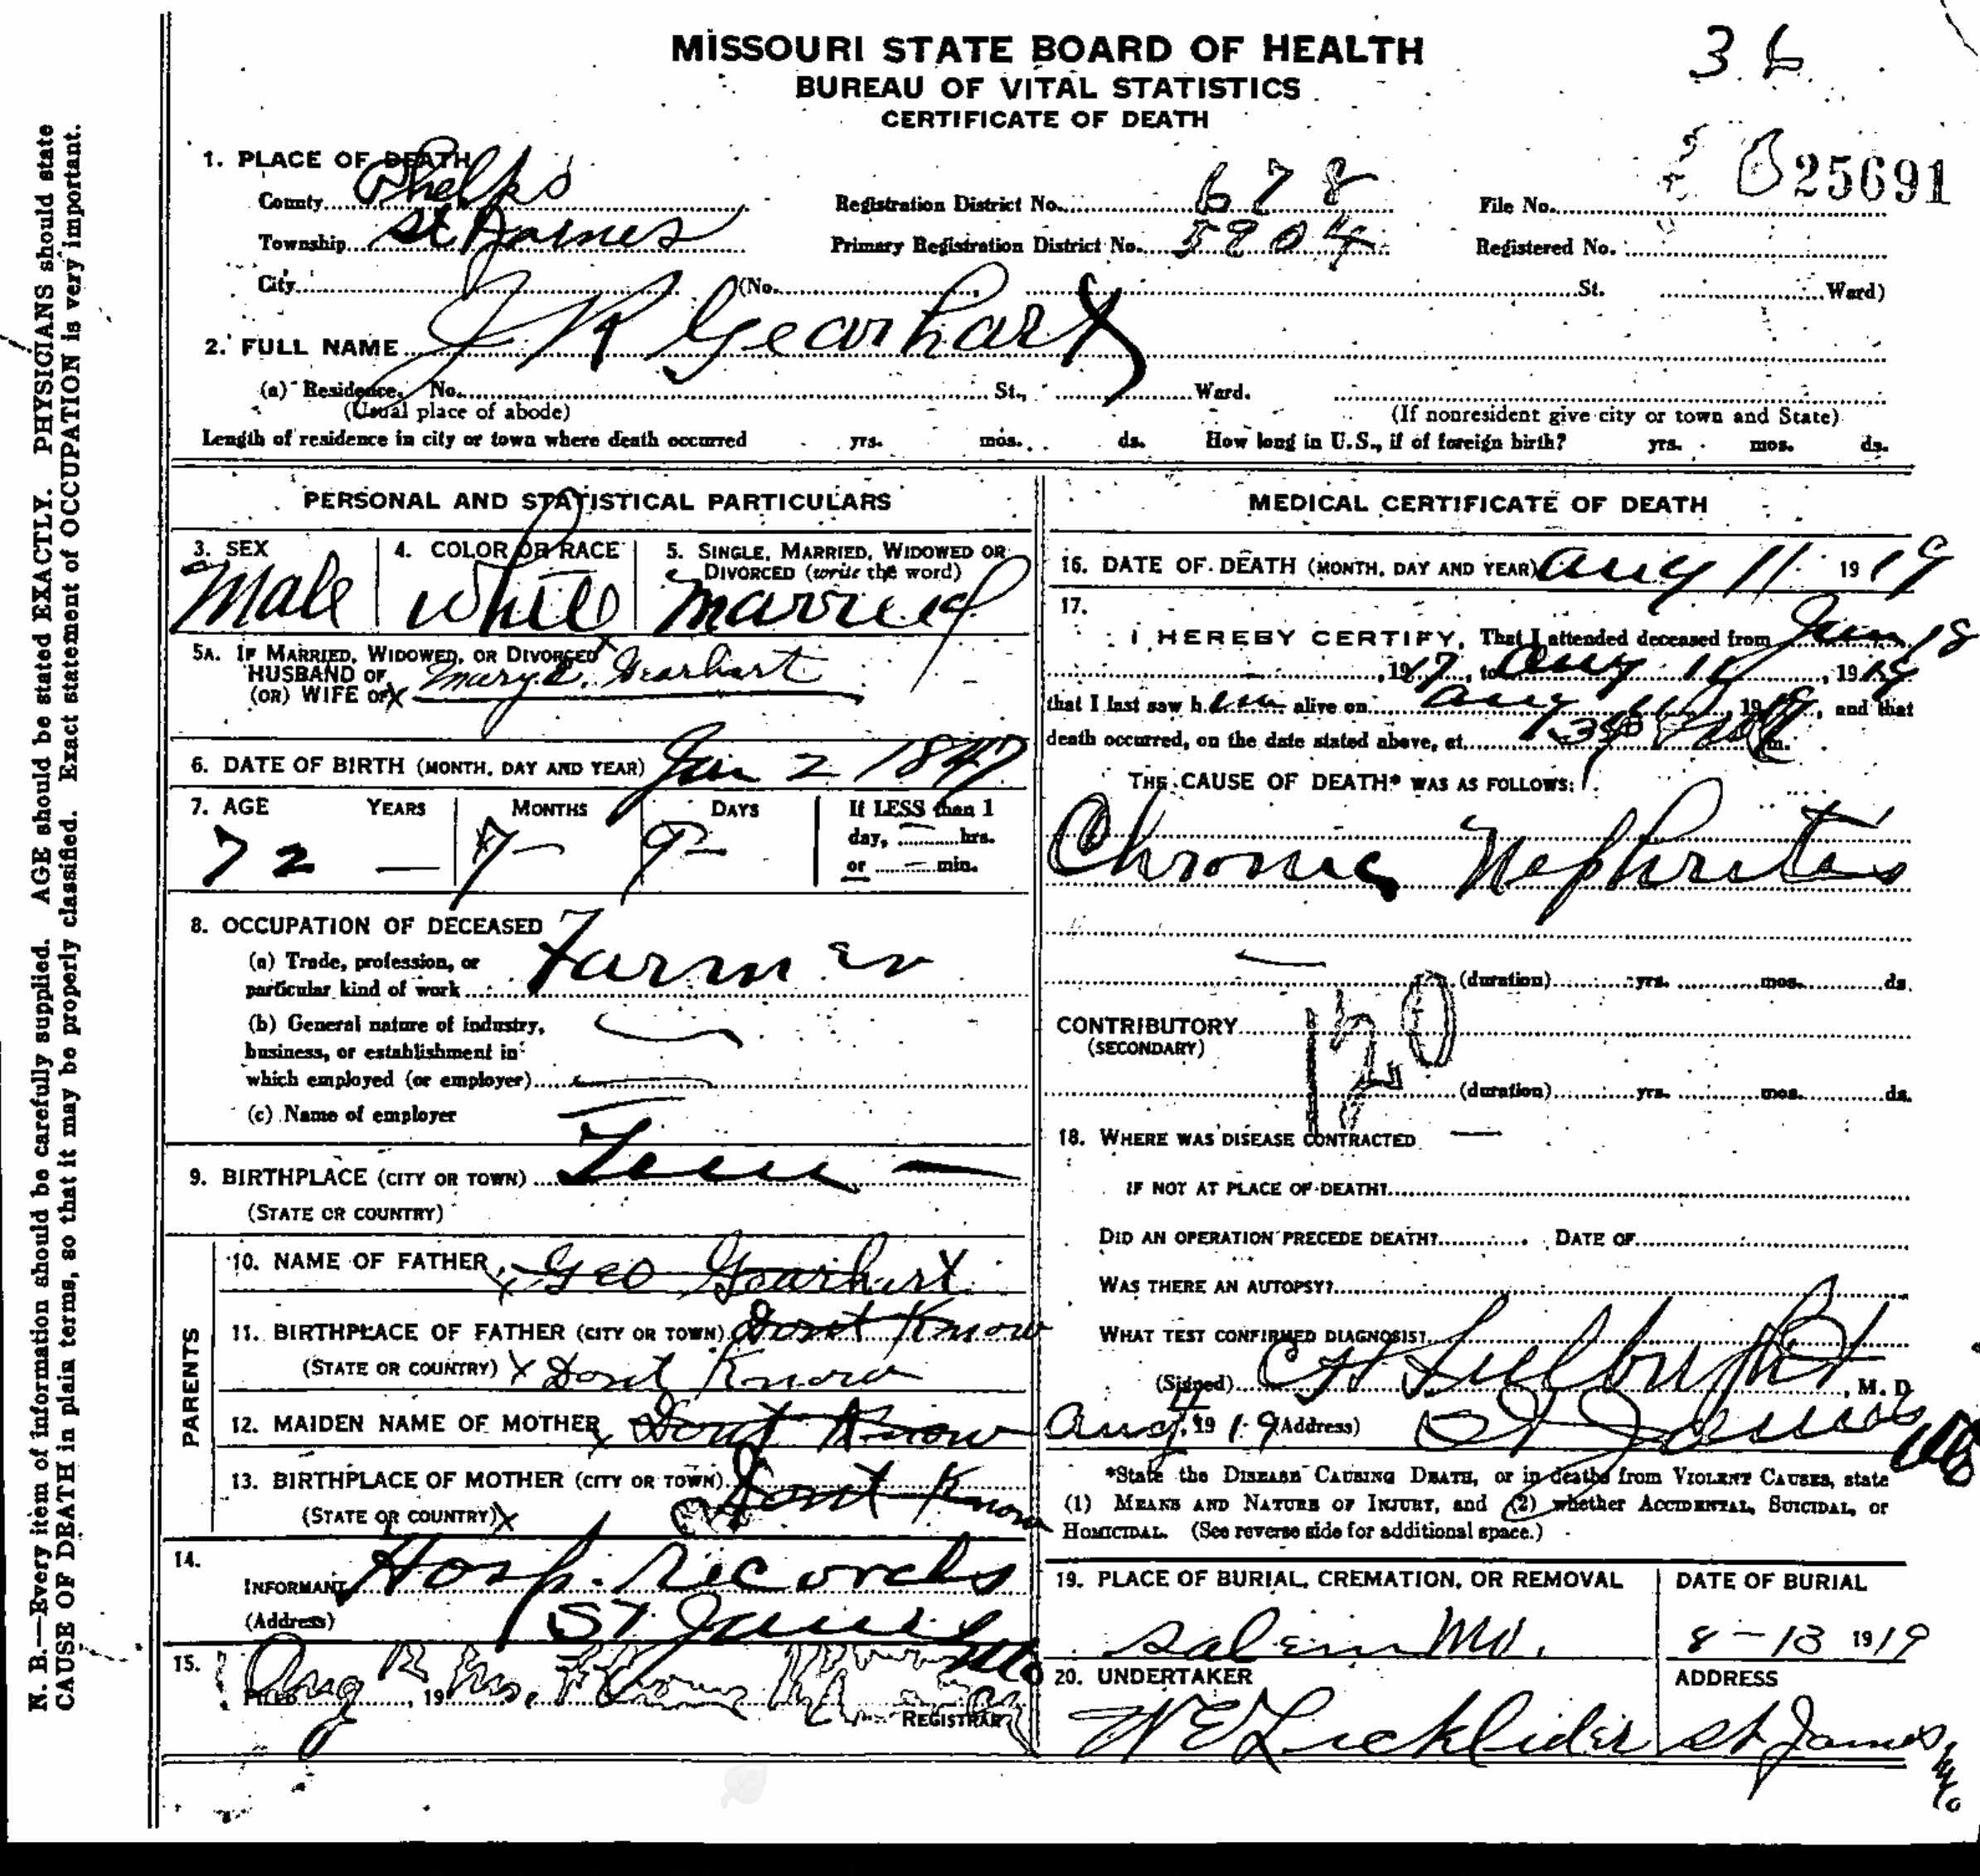 MISSOURI STATE BOARD OF HEALTH
BUREAU OF VITAL STATISTICS
CERTIFICATE OF DEATH
36
25691
1. PLACE OF DEATH
County Phelps Registration District No. 678 File No.
Township St James Primary Registration District No. 5904 Registered No.
City (No. , St. Ward)
2. FULL NAME J R Gearhart
(a) Residence. No. St., Ward.
(Usual place of abode) (If nonresident give city or town and State)
Length of residence in city or town where death occurred yrs. mos. ds. How long in U.S., if of foreign birth? yrs. mos. ds.
PERSONAL AND STATISTICAL PARTICULARS
3. SEX 4. COLOR OR RACE 5. SINGLE, MARRIED, WIDOWED OR
DIVORCED (write the word)
Male White Married
5A. IF MARRIED, WIDOWED, OR DIVORCED
HUSBAND OF
(OR) WIFE OF Mary E. Gearhart
6. DATE OF BIRTH (MONTH, DAY AND YEAR) Jan 2 1847
7. AGE YEARS MONTHS DAYS If LESS than 1
day, hrs.
or min.
72 — 7 — 9 —
8. OCCUPATION OF DECEASED
(a) Trade, profession, or
particular kind of work Farmer
(b) General nature of industry,
business, or establishment in
which employed (or employer)
(c) Name of employer
9. BIRTHPLACE (CITY OR TOWN) Tenn —
(STATE OR COUNTRY)
PARENTS
10. NAME OF FATHER Geo Gearhart
11. BIRTHPLACE OF FATHER (CITY OR TOWN) Dont Know
(STATE OR COUNTRY) X Dont Know
12. MAIDEN NAME OF MOTHER Dont Know
13. BIRTHPLACE OF MOTHER (CITY OR TOWN) Dont Know
(STATE OR COUNTRY) X
14.
INFORMANT Hosp. Records
(Address) St James Mo
15.
FILED Aug , 19 Mrs.
REGISTRAR
MEDICAL CERTIFICATE OF DEATH
16. DATE OF DEATH (MONTH, DAY AND YEAR) Aug 11 1919
17.
I HEREBY CERTIFY, That I attended deceased from
, 1917, to Aug 11, 1919
that I last saw him alive on Aug 11, 1919, and that
death occurred, on the date stated above, at m.
THE CAUSE OF DEATH* WAS AS FOLLOWS:
Chronic Nephritis
(duration) yrs. mos. ds.
CONTRIBUTORY
(SECONDARY)
120
(duration) yrs. mos. ds.
18. WHERE WAS DISEASE CONTRACTED —
IF NOT AT PLACE OF DEATH?
DID AN OPERATION PRECEDE DEATH? DATE OF
WAS THERE AN AUTOPSY?
WHAT TEST CONFIRMED DIAGNOSIS?
(Signed) , M. D.
Aug , 1919 (Address) St James Mo
*State the DISEASE CAUSING DEATH, or in deaths from VIOLENT CAUSES, state
(1) MEANS AND NATURE OF INJURY, and (2) whether ACCIDENTAL, SUICIDAL, or
HOMICIDAL. (See reverse side for additional space.)
19. PLACE OF BURIAL, CREMATION, OR REMOVAL DATE OF BURIAL
Salem Mo. 8-13 1919
20. UNDERTAKER ADDRESS
W E Licklider St James Mo
N. B.—Every item of information should be carefully supplied. AGE should be stated EXACTLY. PHYSICIANS should state
CAUSE OF DEATH in plain terms, so that it may be properly classified. Exact statement of OCCUPATION is very important.